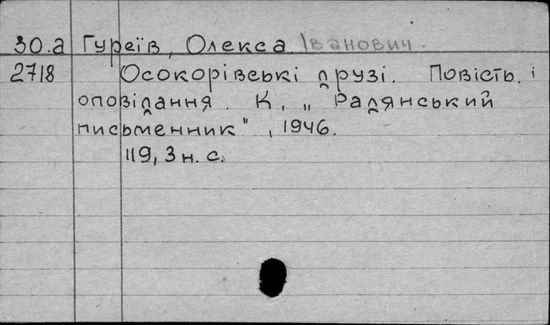 30.а Гуреїв, Олекса Іванович.
2718 Осокорівські друзі. Повість і
оповідання. К, „Радянський
письменник", 1946.
119, 3 н. с.